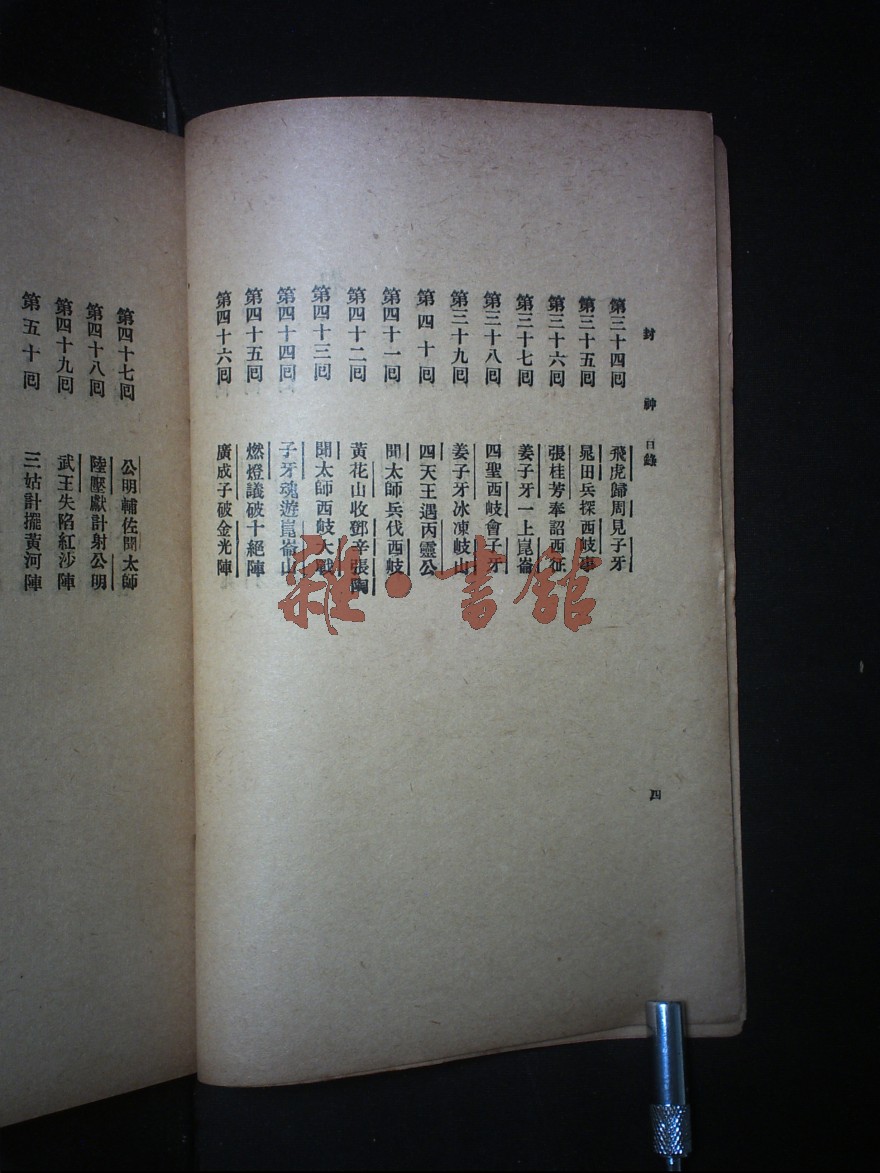 封神 目錄
第三十四囘 飛虎歸周見子牙
第三十五囘 晁田兵探西岐事
第三十六囘 張桂芳奉詔西征
第三十七囘 姜子牙一上崑崙
第三十八囘 四聖西岐會子牙
第三十九囘 姜子牙冰凍岐山
第四十囘 四天王遇丙靈公
第四十一囘 聞太師兵伐西岐
第四十二囘 黃花山收鄧辛張陶
第四十三囘 聞太師西岐大戰
第四十四囘 子牙魂遊崑崙山
第四十五囘 燃燈議破十絕陣
第四十六囘 廣成子破金光陣
四
第四十七囘 公明輔佐聞太師
第四十八囘 陸壓獻計射公明
第四十九囘 武王失陷紅沙陣
第五十囘 三姑計擺黃河陣
雜·書館